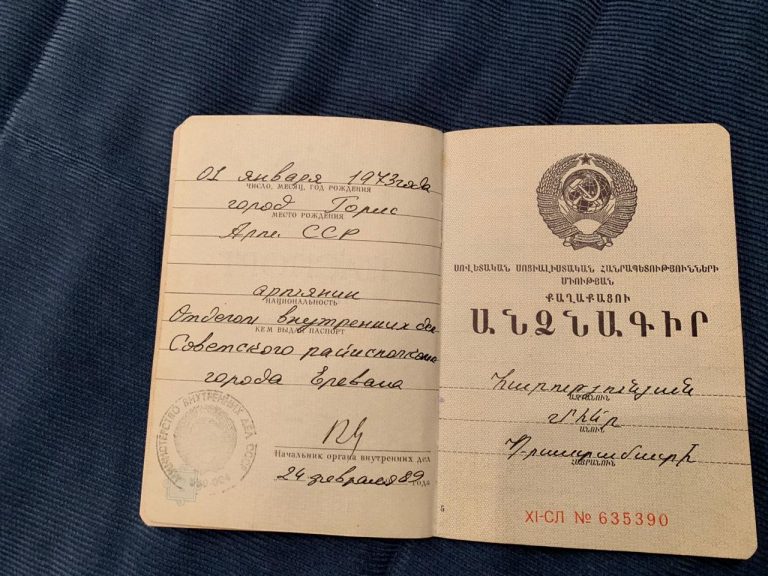 01 января 1973 года
ЧИСЛО, МЕСЯЦ, ГОД РОЖДЕНИЯ
город Горис
МЕСТО РОЖДЕНИЯ
Арм. ССР
армянин
НАЦИОНАЛЬНОСТЬ
Отделом внутренних дел
КЕМ ВЫДАН ПАСПОРТ
Советского райисполкома
города Еревана
МИНИСТЕРСТВО ВНУТРЕННИХ ДЕЛ СССР
Начальник органа внутренних дел
24 февраля 89 года
ՍՈՎԵՏԱԿԱՆ ՍՈՑԻԱԼԻՍՏԱԿԱՆ ՀԱՆՐԱՊԵՏՈՒԹՅՈՒՆՆԵՐԻ
ՄԻՈՒԹՅԱՆ
ՔԱՂԱՔԱՑՈՒ
ԱՆՁՆԱԳԻՐ
Հարությունյան
ԱԶԳԱՆՈՒՆ
Մհեր
ԱՆՈՒՆ
ՀԱՅՐԱՆՈՒՆ
5
XI-СЛ № 635390